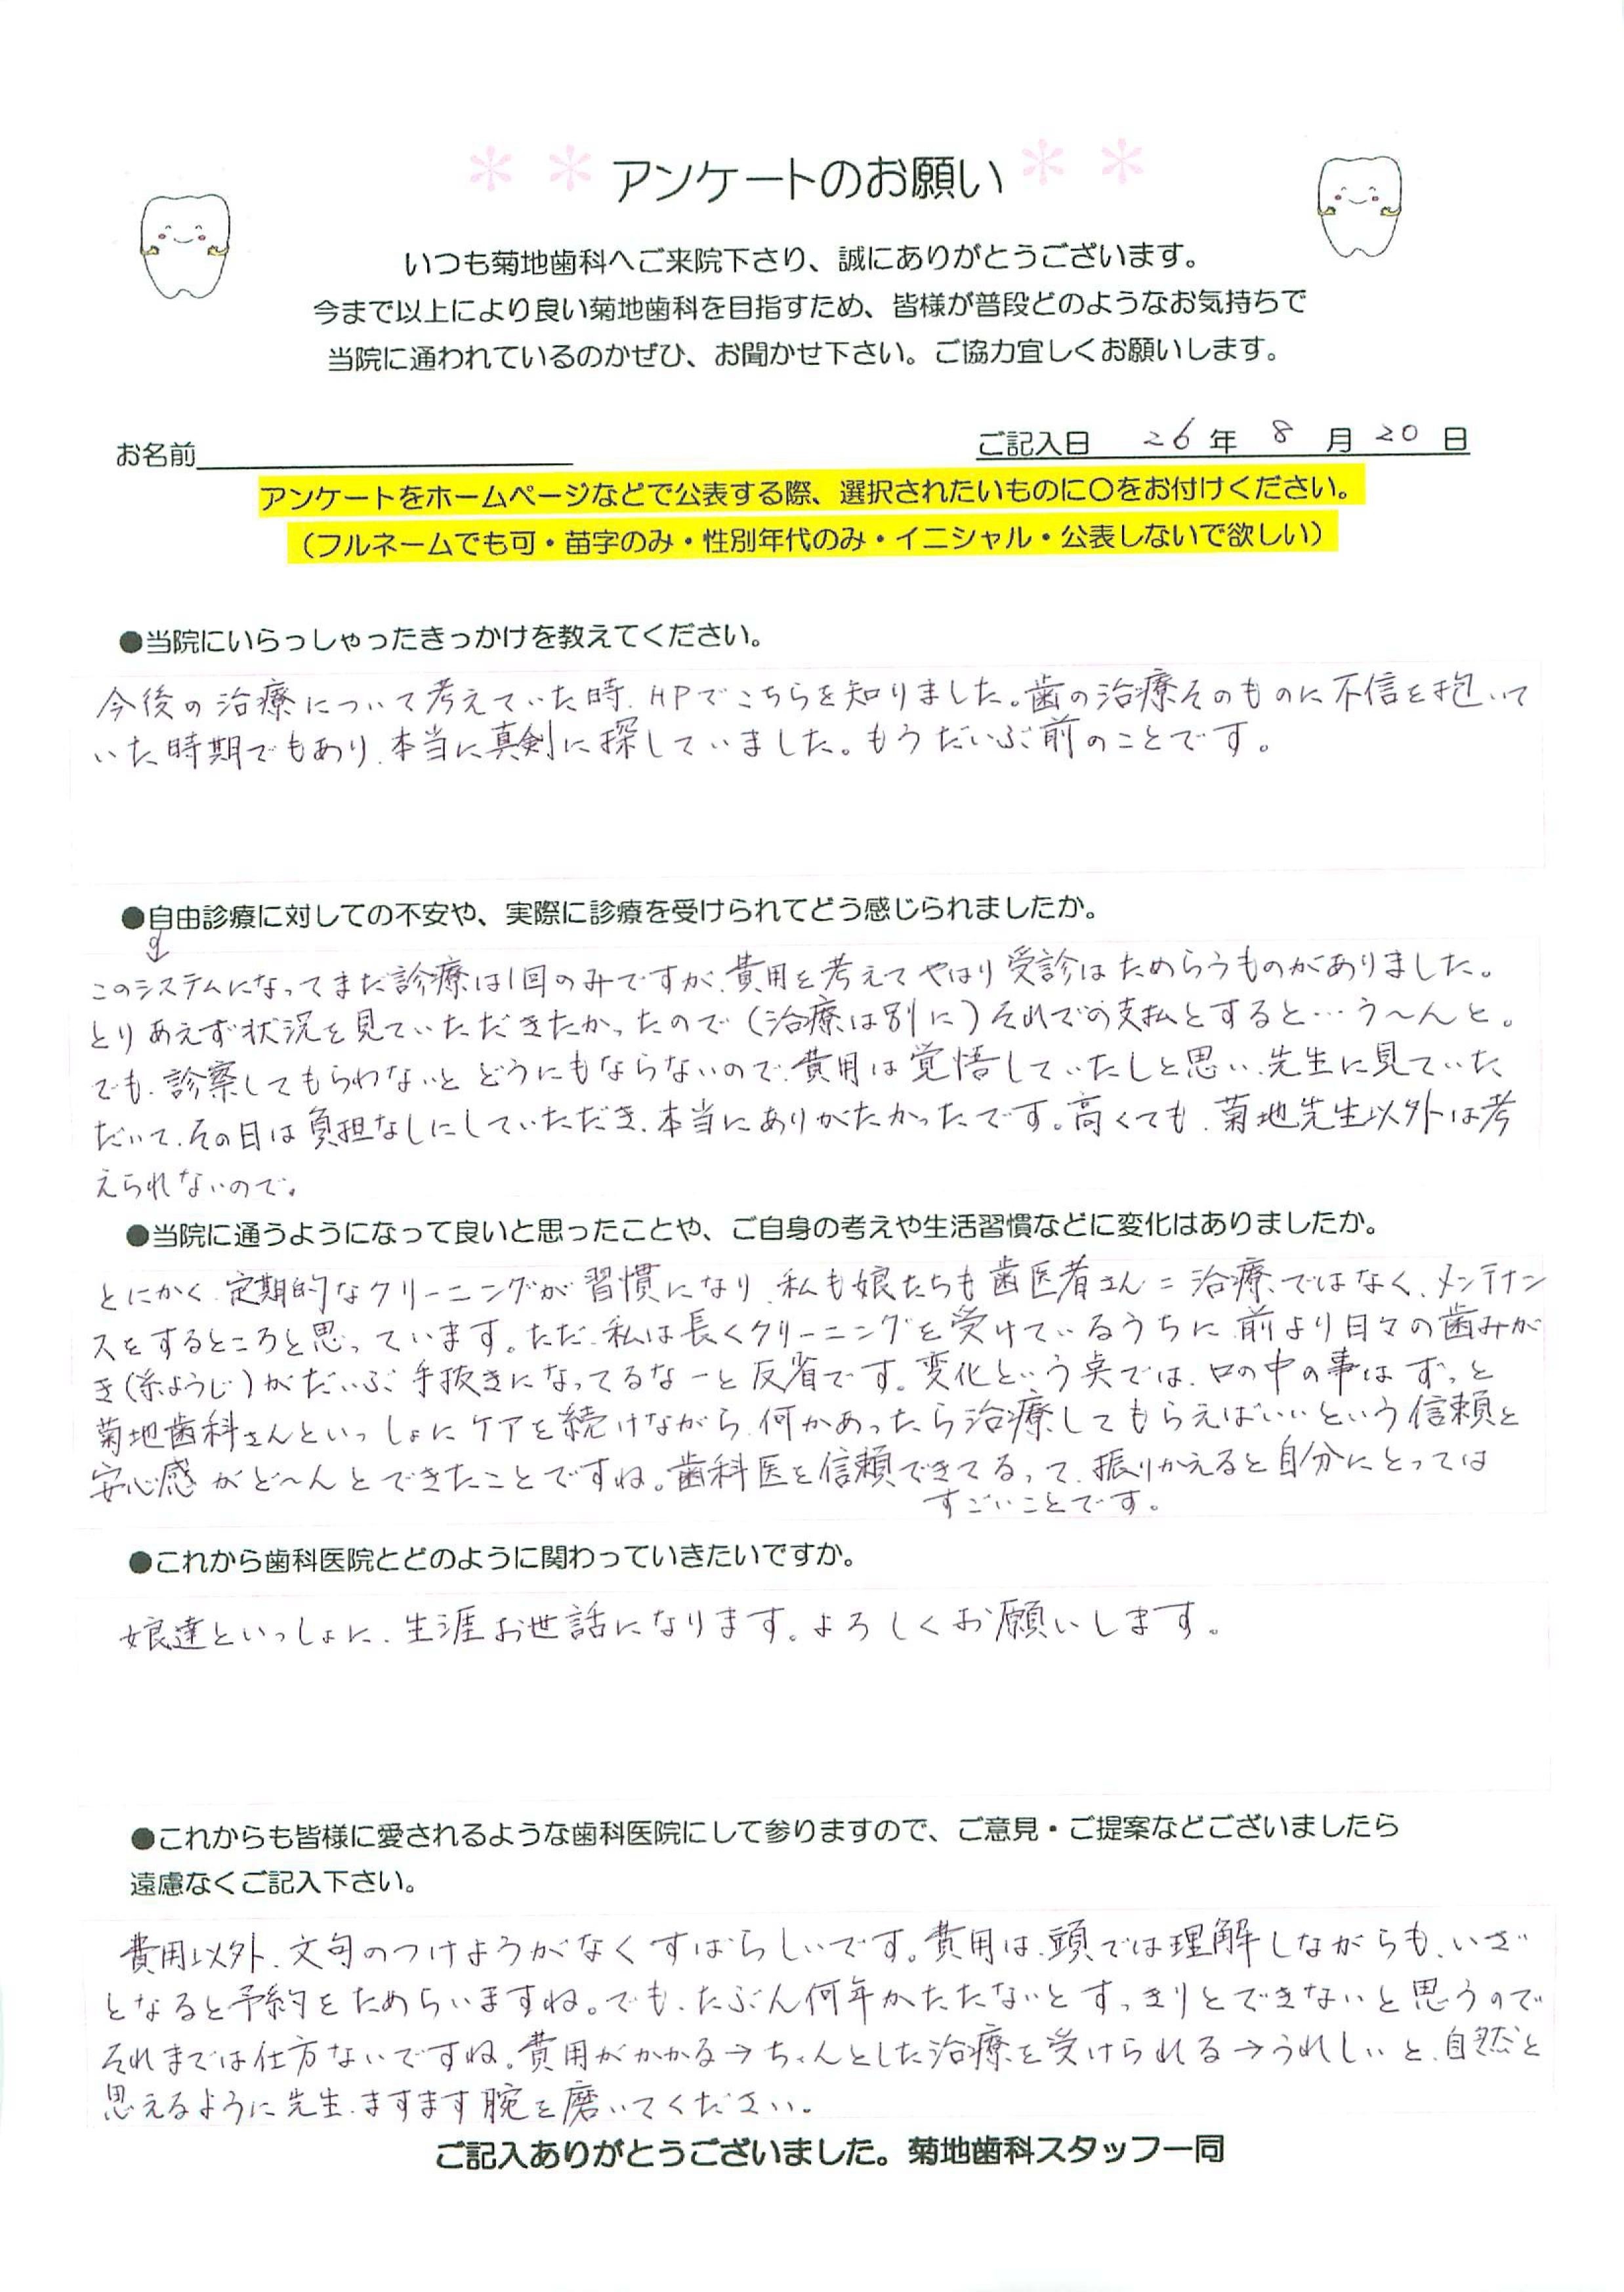 アンケートのお願い
いつも菊地歯科へご来院下さり、誠にありがとうございます。
今まで以上により良い菊地歯科を目指すため、皆様が普段どのようなお気持ちで
当院に通われているのかぜひ、お聞かせ下さい。ご協力宜しくお願いします。
お名前
ご記入日 26年 8月 20日
アンケートをホームページなどで公表する際、選択されたいものに〇をお付けください。
（フルネームでも可・苗字のみ・性別年代のみ・イニシャル・公表しないで欲しい）
●当院にいらっしゃったきっかけを教えてください。
今後の治療について考えていた時、HPでこちらを知りました。歯の治療そのものに不信を抱いて
いた時期でもあり、本当に真剣に探していました。もうだいぶ前のことです。
●自由診療に対しての不安や、実際に診療を受けられてどう感じられましたか。
このシステムになってまだ診療は1回のみですが、費用を考えてやはり受診はためらうものがありました。
とりあえず状況を見ていただきたかったので（治療は別に）それでの支払とすると…う〜んと。
でも、診察してもらわないとどうにもならないので、費用は覚悟していたしと思い、先生に見ていた
だいて、その日は負担なしにしていただき、本当にありがたかったです。高くても、菊地先生以外は考
えられないので。
●当院に通うようになって良いと思ったことや、ご自身の考えや生活習慣などに変化はありましたか。
とにかく、定期的なクリーニングが習慣になり、私も娘たちも歯医者さん＝治療、ではなく、メンテナン
スをするところと思っています。ただ、私は長くクリーニングを受けているうちに、前より日々の歯みが
き（糸ようじ）がだいぶ手抜きになってるなーと反省です。変化という点では、口の中の事はずっと
菊地歯科さんといっしょにケアを続けながら、何かあったら治療してもらえばいいという信頼と
安心感がど〜んとできたことですね。歯科医を信頼できてるって、振りかえると自分にとっては
すごいことです。
●これから歯科医院とどのように関わっていきたいですか。
娘達といっしょに、生涯お世話になります。よろしくお願いします。
●これからも皆様に愛されるような歯科医院にして参りますので、ご意見・ご提案などございましたら
遠慮なくご記入下さい。
費用以外、文句のつけようがなくすばらしいです。費用は、頭では理解しながらも、いざ
となると予約をためらいますね。でも、たぶん何年かたたないとすっきりとできないと思うので
それまでは仕方ないですね。費用がかかる→ちゃんとした治療を受けられる→うれしい と、自然と
思えるように先生、ますます腕を磨いてください。
ご記入ありがとうございました。菊地歯科スタッフ一同